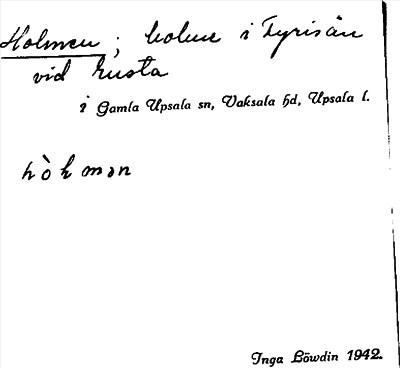 Holmen; holme i Fyrisån
vid Ensta
i Gamla Upsala sn, Vaksala hd, Upsala l.
hòlmən
Inga Löwdin 1942.